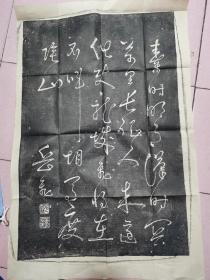 秦時明月漢時關
萬里長征人未還
但使龍城飛將在
不教胡馬度
陰山
岳飛